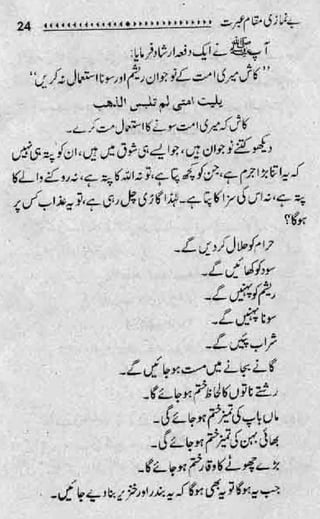 بے نمازی مقام عبرت 24
آپ ﷺ نے ایک دفعہ ارشاد فرمایا:
"کاش میری امت کے نوجوان ریشم اور سونا استعمال نہ کریں"
یلیت امتی لم تلبس الذھب
کاش کہ میری امت سونے کا استعمال مت کرے۔
دیکھو کتنے نوجوان ہیں، جو ایسے ہی شوق میں ہیں، ان کو پتہ ہی نہیں
کہ یہ اتنا بڑا جرم ہے، جن کو کچھ پتا ہے، تو نہ اللہ کا پتہ ہے، نہ روکنے والے کا
پتہ ہے، نہ اس کی سزا کا پتا ہے۔ لہٰذا گاڑی چل رہی ہے، تو یہ عذاب کس پر
ہوگا؟
حرام کو حلال کر دیں گے۔
سود کو کھائیں گے۔
ریشم کو پہنیں گے۔
سونا پہنیں گے۔
شراب پیں گے۔
گانے بجانے میں مست ہو جائیں گے۔
رشتے ناتوں کا لحاظ ختم ہو جائے گا۔
ماں باپ کی تمیز ختم ہو جائے گی۔
بھائی بہن کی تمیز ختم ہو جائے گی۔
بڑے چھوٹے کا وقار ختم ہو جائے گا۔
جب یہ ہوگا تو یہ بھی ہوگا کہ یہ بندر اور خنزیر بنا دیے جائیں۔